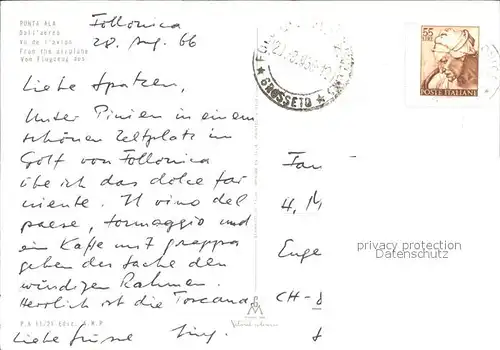 PUNTA ALA
Dall'aereo
Vu de l'avion
From the airplane
Vom Flugzeug aus
Follonica
28. Aug. 66
Liebe Spatzen,
Unter Pinien in einem
schönen Zeltplatz im
Golf von Follonica
übe ich das dolce far
niente. Il vino del
paese, formaggio und
ein Kaffe mit grappa
geben der Sache den
würdigen Rahmen.
Herrlich ist die Toscana
Liebe Grüsse
GROSSETO
55
LIRE
POSTE ITALIANE
Fam
4, M
Euge
CH-8
privacy protection
Datenschutz